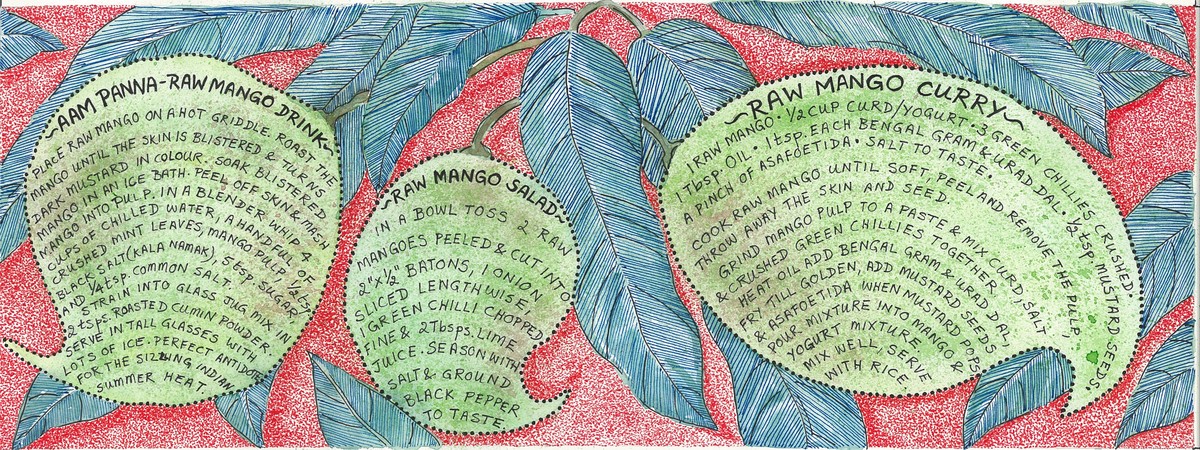 ~AAM PANNA-RAW MANGO DRINK~
PLACE RAW MANGO ON A HOT GRIDDLE. ROAST THE
MANGO UNTIL THE SKIN IS BLISTERED & TURNS
DARK MUSTARD IN COLOUR. SOAK BLISTERED
MANGO IN AN ICE BATH. PEEL OFF SKIN & MASH
MANGO INTO PULP. IN A BLENDER WHIP 4
CUPS OF CHILLED WATER, A HANDFUL OF
CRUSHED MINT LEAVES, MANGO PULP, ½ tsp
BLACK SALT (KALA NAMAK), 5 tsp SUGAR
AND ¼ tsp COMMON SALT.
STRAIN INTO GLASS JUG MIX IN
2 tsps. ROASTED CUMIN POWDER.
SERVE IN TALL GLASSES WITH
LOTS OF ICE. PERFECT ANTIDOTE
FOR THE SIZZLING INDIAN
SUMMER HEAT
-RAW MANGO SALAD-
IN A BOWL TOSS 2 RAW
MANGOES PEELED & CUT INTO
2"x½" BATONS, 1 ONION
SLICED LENGTHWISE.
1 GREEN CHILLI CHOPPED
FINE & 2Tbsps. LIME
JUICE. SEASON WITH
SALT & GROUND
BLACK PEPPER
TO TASTE.
~RAW MANGO CURRY~
1 RAW MANGO • ½ CUP CURD/YOGURT • 3 GREEN CHILLIES CRUSHED.
1 Tbsp. OIL • 1 tsp. EACH BENGAL GRAM & URAD DAL • ½ tsp MUSTARD SEEDS.
A PINCH OF ASAFOETIDA • SALT TO TASTE.
COOK RAW MANGO UNTIL SOFT, PEEL AND REMOVE THE PULP,
THROW AWAY THE SKIN AND SEED.
GRIND MANGO PULP TO A PASTE & MIX CURD, SALT
& CRUSHED GREEN CHILLIES TOGETHER.
HEAT OIL ADD BENGAL GRAM & URAD DAL,
FRY TILL GOLDEN, ADD MUSTARD SEEDS
& ASAFOETIDA WHEN MUSTARD SEEDS POPS
POUR MIXTURE INTO MANGO &
YOGURT MIXTURE.
MIX WELL, SERVE
WITH RICE